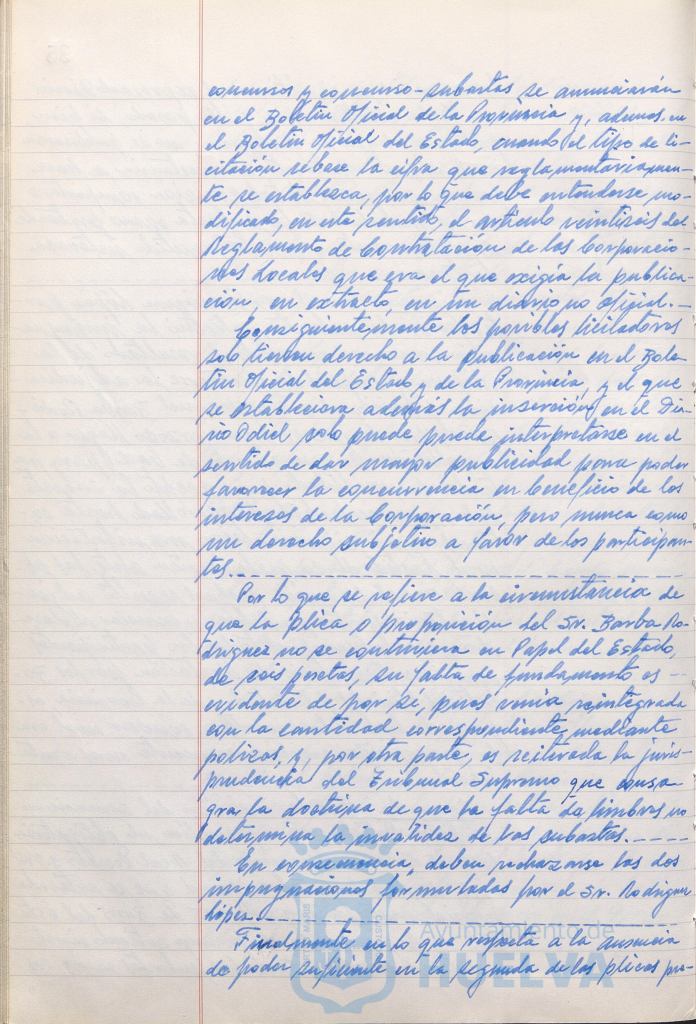 concursos y concurso-subastas se anunciarán
en el Boletín Oficial de la Provincia y, ademas, en
el Boletín Oficial del Estado, cuando el tipo de li-
citación rebase la cifra que reglamentariamen-
te se establezca, por lo que debe entenderse mo-
dificado, en este sentido, el artículo veintiseis del
Reglamento de Contratación de las Corporacio-
nes Locales que era el que exigía la publica-
ción, en extracto, en un diario no oficial.-
Consiguientemente los posibles licitadores
solo tienen derecho a la publicación en el Bole-
tin Oficial del Estado y de la Provincia, y el que
se estableciera además la inserción en el Dia-
rio Odiel solo puede pueda interpretarse en el
sentido de dar mayor publicidad para poder
favorecer la concurrencia en beneficio de los
intereses de la Corporación, pero nunca como
un derecho subjetivo a favor de los participan-
tes.
Por lo que se refiere a la circunstancia de
que la plica o proposición del Sr. Barba Ro-
driguez no se contuviera en Papel del Estado,
de seis pesetas, su falta de fundamento es -
evidente de por sí, pues venía reintegrada
con la cantidad correspondiente, mediante
polizas, y, por otra parte, es reiterada la juris-
prudencia del Tribunal Supremo que consa-
gra la doctrina de que la falta de timbres no
determina la invalidez de las subastas.----
En consecuencia, deben rechazarse las dos
impugnaciones formuladas por el Sr. Rodriguez
López.
Finalmente en lo que respecta a la ausencia
de poder suficiente en la segunda de las plicas pre-
Ayuntamiento de
HUELVA